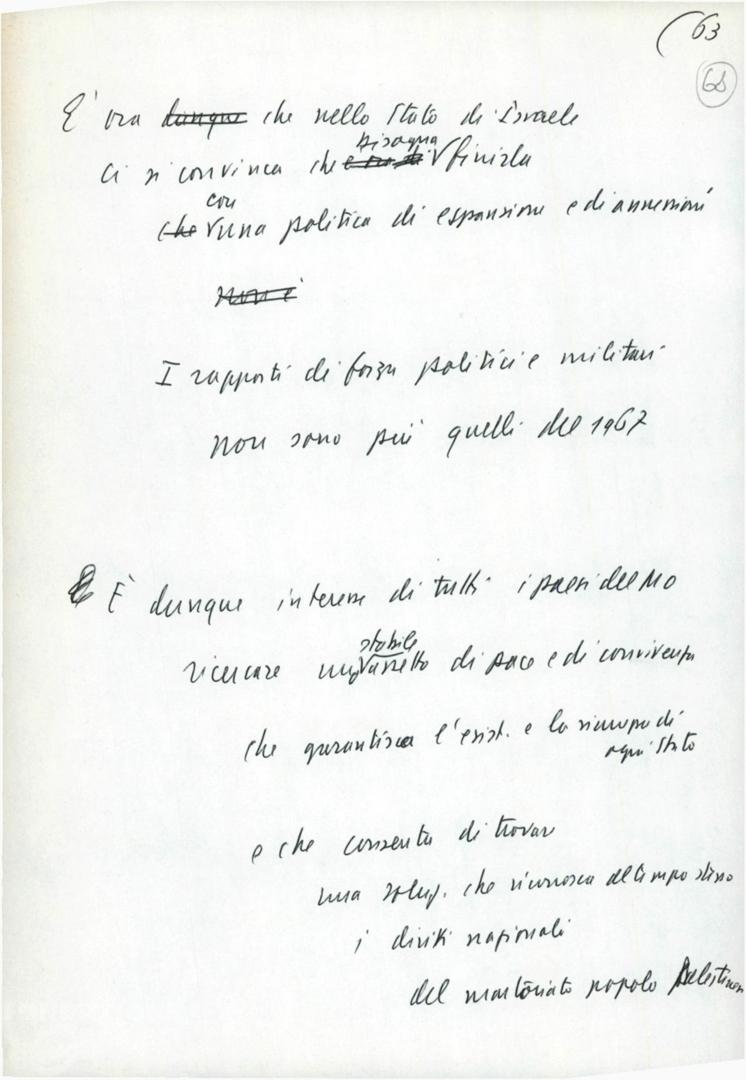 63
68
E' ora dunque che nello Stato di Israele
ci si convinca che bisogna finirla
che con una politica di espansione e di annessioni
non è
I rapporti di forza politici e militari
non sono più quelli del 1967
È dunque interesse di tutti i paesi del MO
ricercare un stabile assetto di pace e di convivenza
che garantisca l'esist. e la sicurezza di
ogni Stato
e che consenta di trovare
una soluz. che riconosca al tempo stesso
i diritti nazionali
del martoriato popolo Palestinese